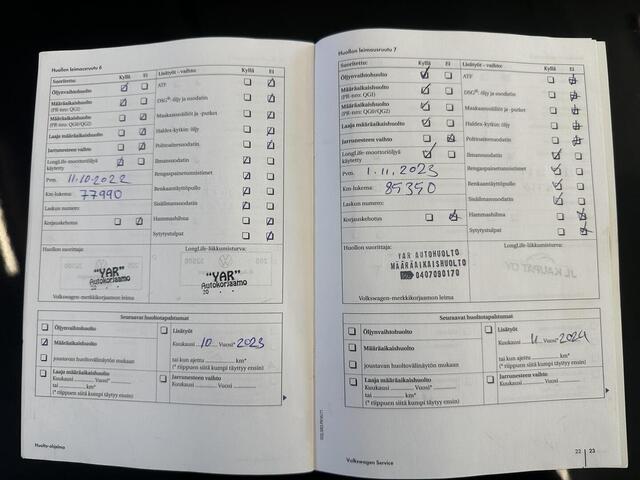 Huollon leimausruutu 6
Suoritettu: Kyllä Ei
Öljynvaihtohuolto
Määräaikaishuolto
(PR-nro: QG1)
Määräaikaishuolto
(PR-nro: QG0/QG2)
Laaja määräaikaishuolto
Jarrunesteen vaihto
LongLife-moottoriöljyä
käytetty
Pvm. 11.10.2022
Km-lukema: 77990
Laskun numero:
Korjauskehotus
Lisätyöt - vaihto: Kyllä Ei
ATF
DSG®: öljy ja suodatin
Maakaasusäiliöt ja -putket
Haldex-kytkin: öljy
Polttoainesuodatin
Ilmansuodatin
Rengaspainetunnistimet
Renkaantäyttöpullo
Sisäilmansuodatin
Hammashihna
Sytytystulpat
Huollon suorittaja:
LongLife-liikkumisturva:
"YAR"
Autokorjaamo
"YAR"
Autokorjaamo
Volkswagen-merkkikorjaamon leima
Seuraavat huoltotapahtumat
Öljynvaihtohuolto
Määräaikaishuolto
joustavan huoltovälinäytön mukaan
Laaja määräaikaishuolto
Kuukausi Vuosi*
tai km*
(* riippuen siitä kumpi täyttyy ensin)
Lisätyöt
Kuukausi 10 Vuosi* 2023
tai kun ajettu km*
(* riippuen siitä kumpi täyttyy ensin)
Jarrunesteen vaihto
Kuukausi Vuosi
Huolto-ohjelma
Huollon leimausruutu 7
Suoritettu: Kyllä Ei
Öljynvaihtohuolto
Määräaikaishuolto
(PR-nro: QG1)
Määräaikaishuolto
(PR-nro: QG0/QG2)
Laaja määräaikaishuolto
Jarrunesteen vaihto
LongLife-moottoriöljyä
käytetty
Pvm. 1.11.2023
Km-lukema: 85350
Laskun numero:
Korjauskehotus
Lisätyöt - vaihto: Kyllä Ei
ATF
DSG®: öljy ja suodatin
Maakaasusäiliöt ja -putket
Haldex-kytkin: öljy
Polttoainesuodatin
Ilmansuodatin
Rengaspainetunnistimet
Renkaantäyttöpullo
Sisäilmansuodatin
Hammashihna
Sytytystulpat
Huollon suorittaja:
LongLife-liikkumisturva:
YAR AUTOHUOLTO
MÄÄRÄAIKAISHUOLTO
0407090170
Volkswagen-merkkikorjaamon leima
Seuraavat huoltotapahtumat
Öljynvaihtohuolto
Määräaikaishuolto
joustavan huoltovälinäytön mukaan
Laaja määräaikaishuolto
Kuukausi Vuosi*
tai km*
(* riippuen siitä kumpi täyttyy ensin)
Lisätyöt
Kuukausi 11 Vuosi* 2024
tai kun ajettu km*
(* riippuen siitä kumpi täyttyy ensin)
Jarrunesteen vaihto
Kuukausi Vuosi
Volkswagen Service
22 23